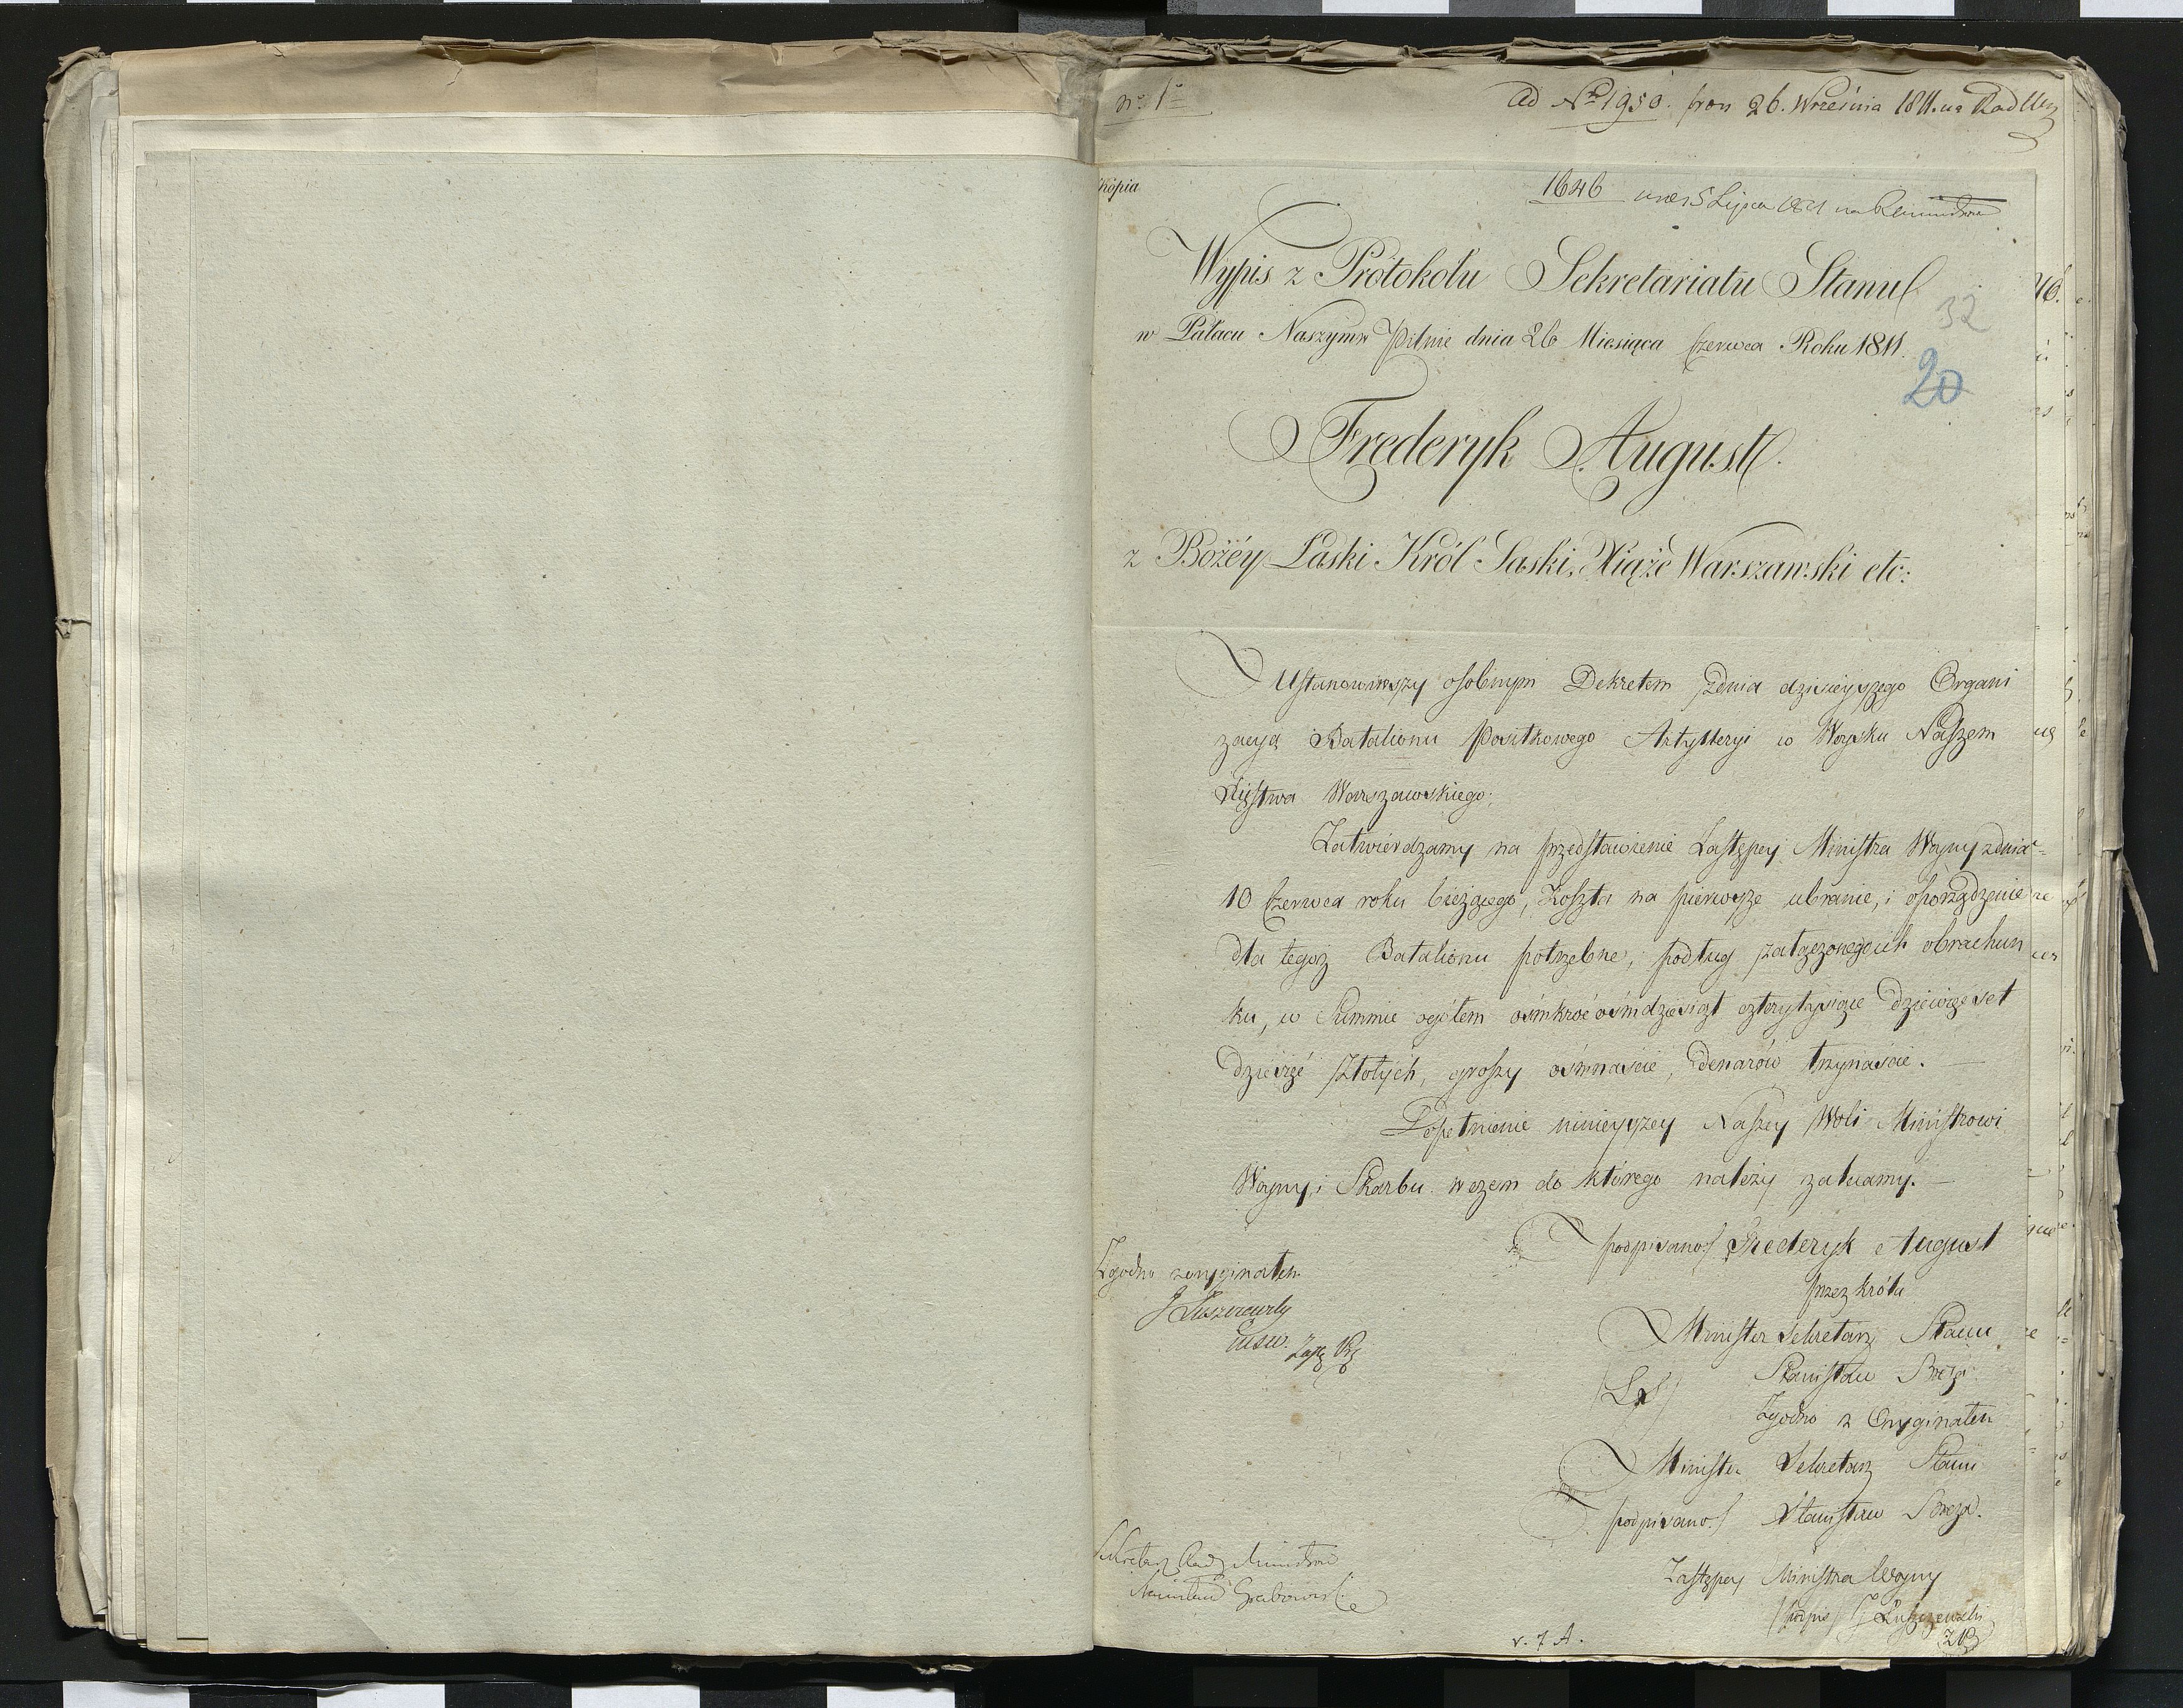 No 1o
ad No 1950. pron 26. Września 1811. na Rad
Kopia
1646 5 Lipca 1811 na
Wypis z Protokołu Sekretariatu Stanu
32
w Pałacu Naszym w Pilnic dnia 26 Miesiąca Czerwca Roku 1811.
20
Frederyk August.
z Bożéy Łaski Król Saski, Xiąże Warszawski etc:
Ustanowiwszy osobnym Dekretem z dnia dzisieyszego Organi
zacyą Batalionu Positkowego Artylleryi w Woysku Naszem
Xięstwa Warszawskiego;
Zatwierdzamy na przedstawienie Zastępcy Ministra Woyny z dnia
10 Czerwca roku bieżącego, Koszta na pierwsze ubranie, i oporządzenie
dla tegoż Batalionu potrzebne, podług załączonego ich obrachun
ku, w Summie ogółem ośmkroć ośmdziesiąt cztery tysiące dziewięćset
dziesięć złotych, groszy ośmnaście, denarów trzynaście.
Dopełnienie ninieyszey Naszey Woli Ministrowi
Woyny i Skarbu w czem do którego należy zalecamy.
podpisano/ Frederyk August
przez Króla
Zgodno z oryginałem
J Łuszczewski
Minister Sekretarz Stanu
Stanisław Breza
/LS/
Zgodno z Oryginałem
Minister Sekretarz Stanu
podpisano/ Stanisław Breza.
Sekretarz Rady Ministrów
Stanisław Grabowski
Zastępcy Ministra Woyny
/podpis/ J Łuszczewski
v. 7 A.